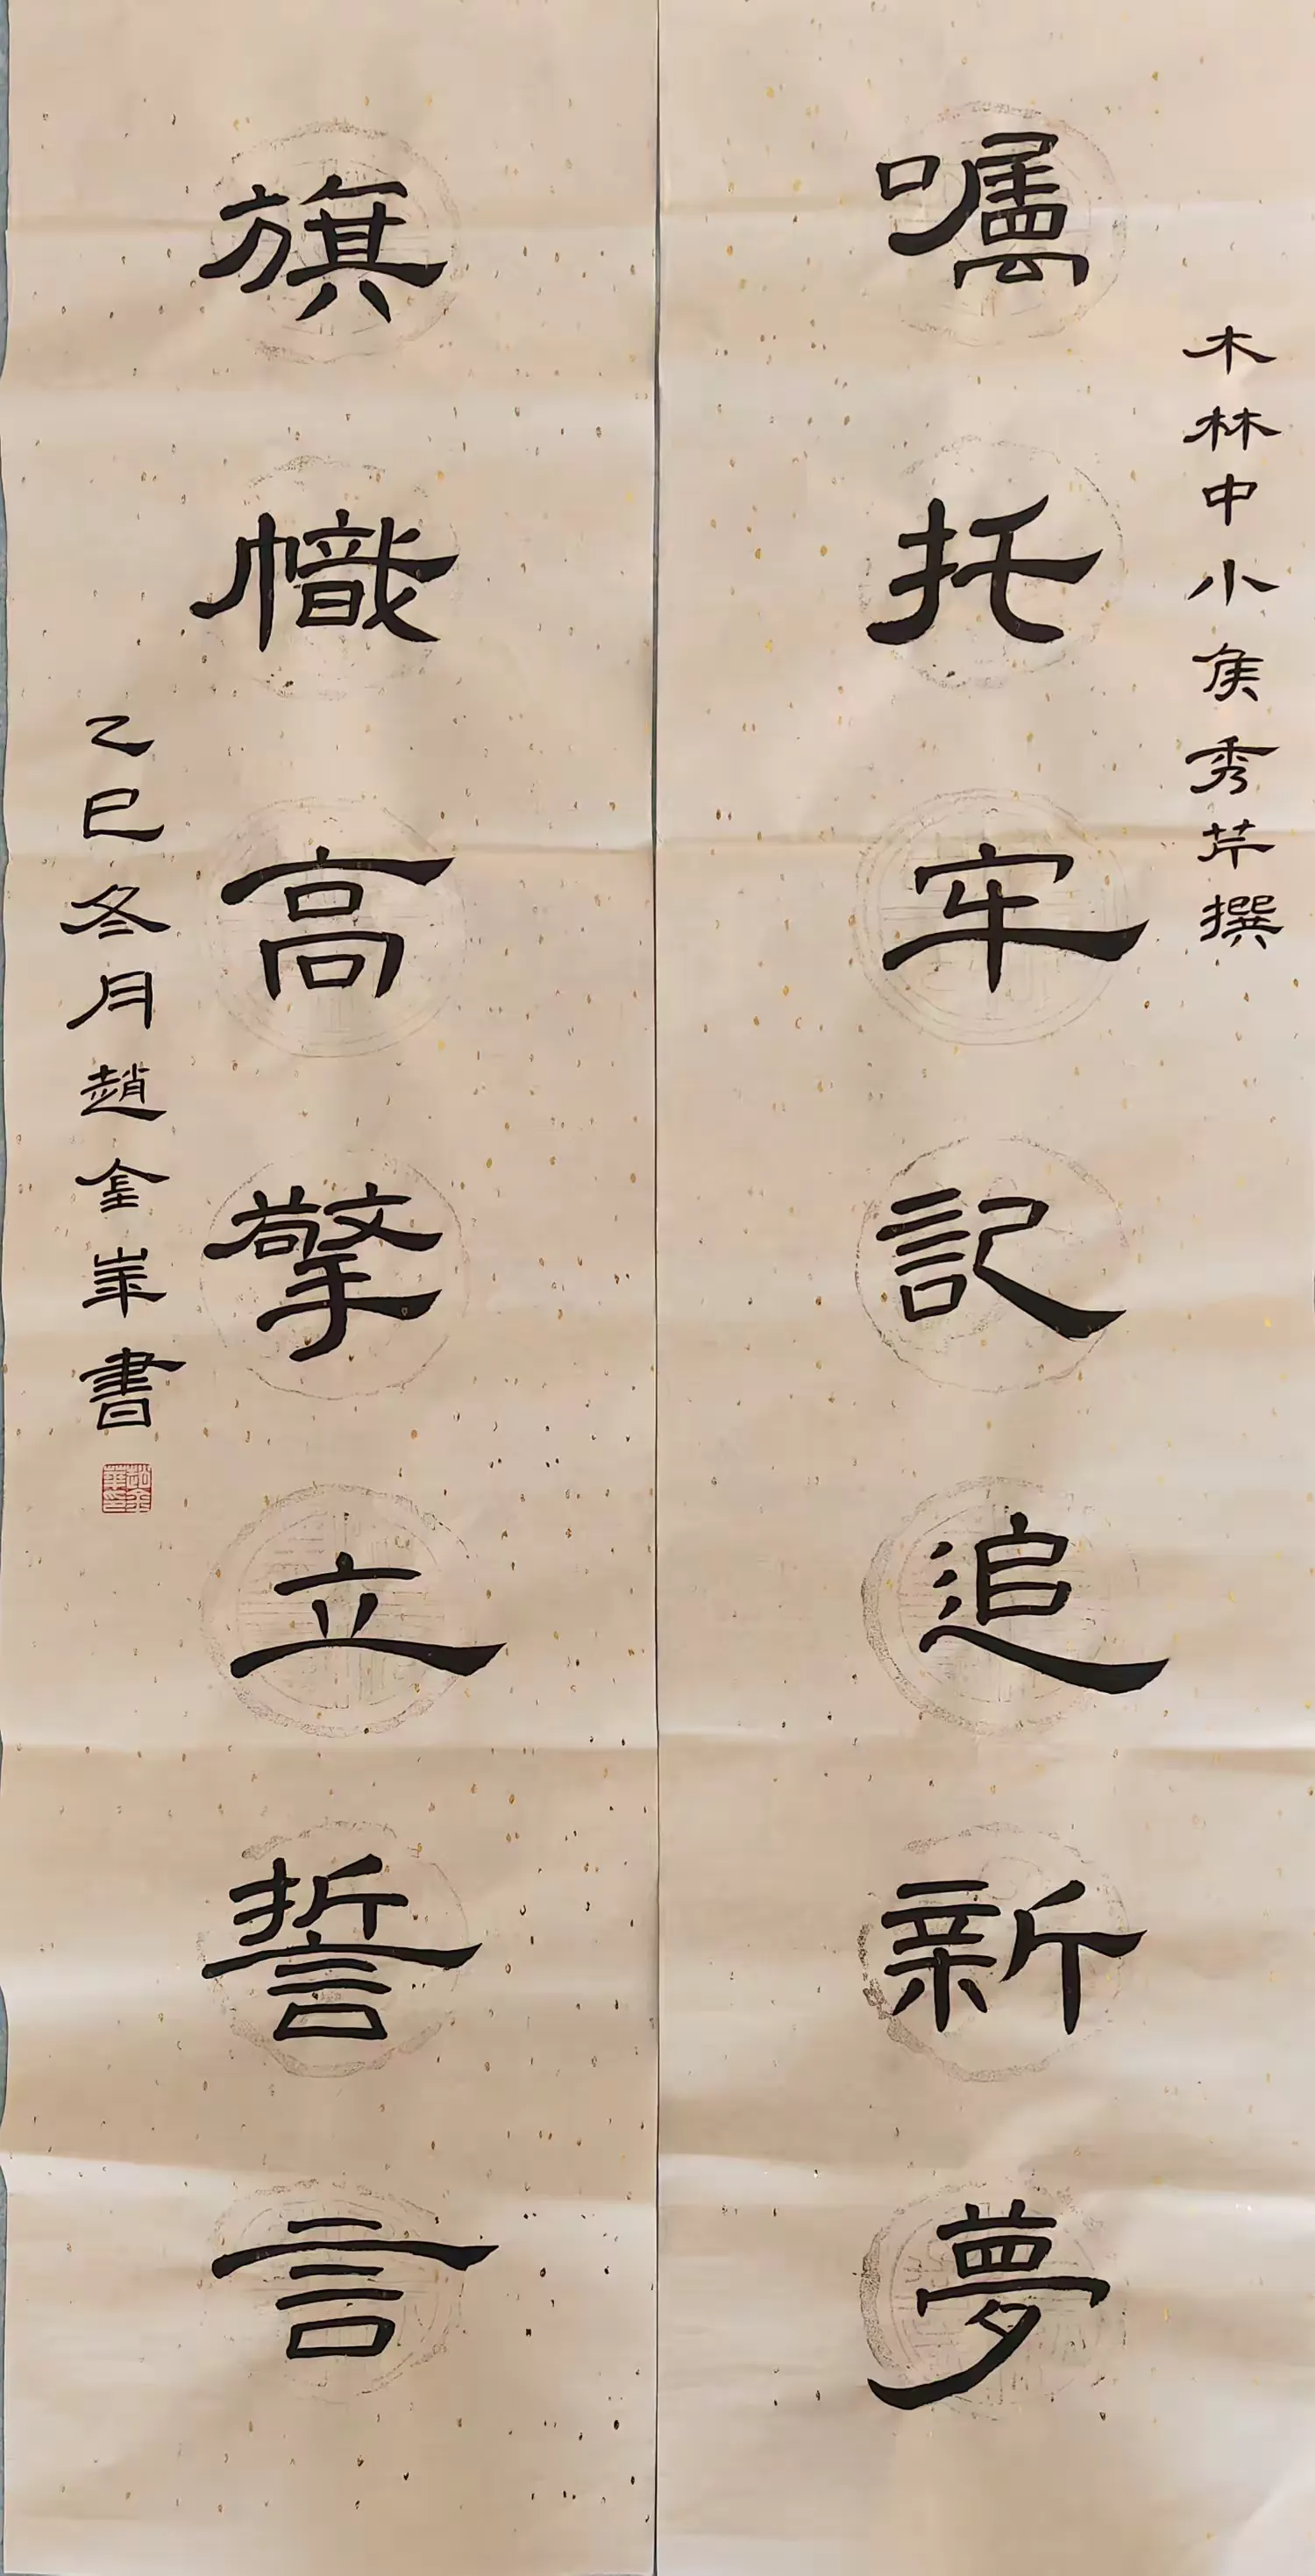 木林中小侯秀芹撰
囑托牢記追新夢
旗幟高擎立誓言
乙巳冬月趙金峯書